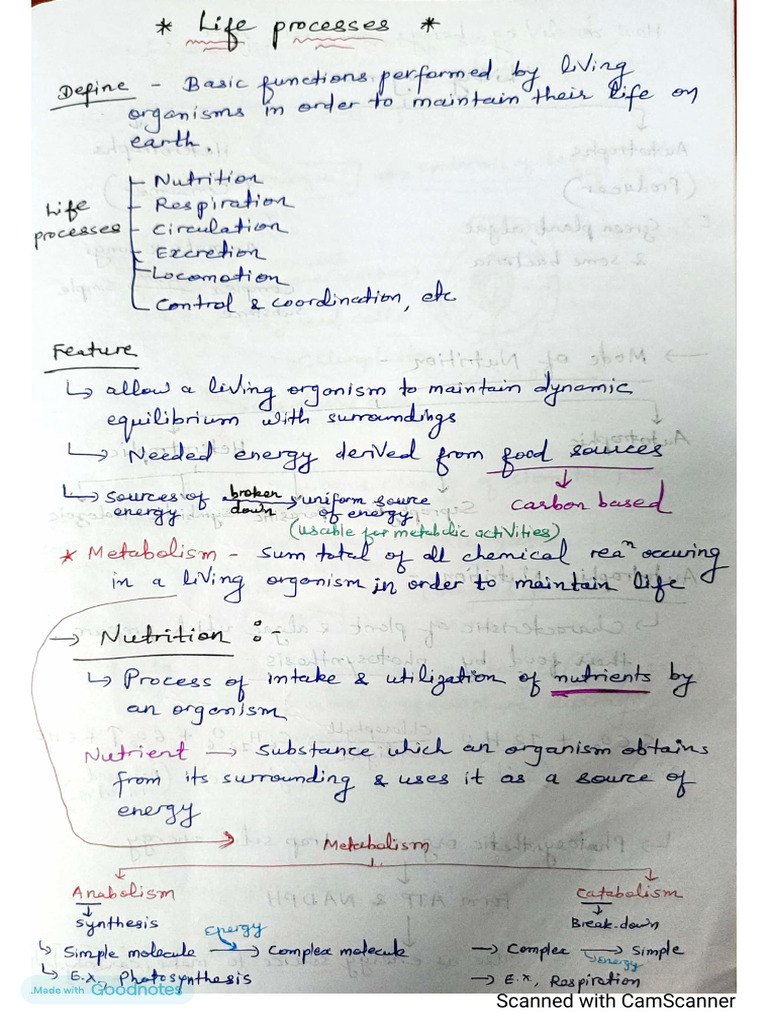 * Life processes *
Define - Basic functions performed by living
organisms in order to maintain their life on
earth.
Life processes
- Nutrition
- Respiration
- Circulation
- Excretion
- Locomotion
- Control & coordination, etc
Feature
↳ allow a living organism to maintain dynamic
equilibrium with surroundings
↳ Needed energy derived from food sources
↓
carbon based
↳ Sources of energy broken down → uniform source of energy
(usable for metabolic activities)
* Metabolism - Sum total of all chemical reaⁿ occuring
in a living organism in order to maintain life
→ Nutrition :-
↳ Process of intake & utilization of nutrients by
an organism
Nutrient → Substance which an organism obtains
from its surrounding & uses it as a source of
energy
Metabolism
Anabolism
↓
synthesis
↳ Simple molecule Energy → Complex molecule
↳ E.x., Photosynthesis
Catabolism
↓
Break-down
→ Complex → Simple
Energy
→ E.x., Respiration
Made with Goodnotes
Scanned with CamScanner